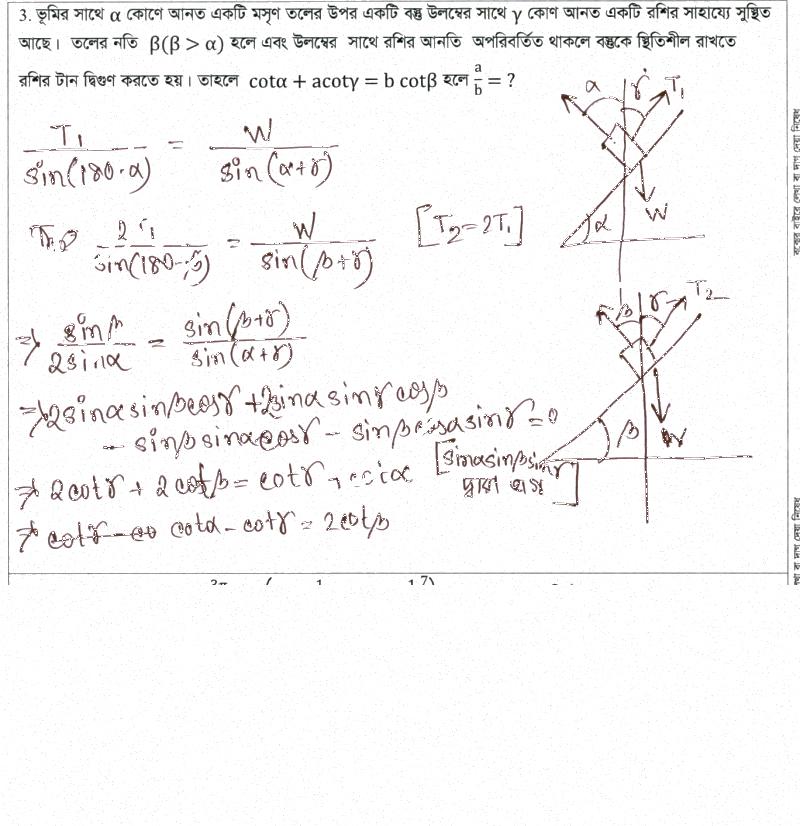 3. ভূমির সাথে α কোণে আনত একটি মসৃণ তলের উপর একটি বস্তু উলম্বের সাথে γ কোণ আনত একটি রশির সাহায্যে সুস্থিত
আছে। তলের নতি β(β > α) হলে এবং উলম্বের সাথে রশির আনতি অপরিবর্তিত থাকলে বস্তুকে স্থিতিশীল রাখতে
রশির টান দ্বিগুণ করতে হয়। তাহলে cotα + acotγ = b cotβ হলে a/b = ?
α γ T₁
T₁/sin(180-α) = W/sin(α+γ)
W
α
2T₁/sin(180-β) = W/sin(β+γ) [T₂=2T₁]
β γ T₂
⇒ sinβ/2sinα = sin(β+γ)/sin(α+γ)
⇒ 2sinαsinβcosγ + 2sinα sinγ cosβ
- sinβ sinα cosγ - sinβ cosα sinγ = 0
β W
⇒ 2cotγ + 2cotβ = cotγ + cotα [sinαsinβsinγ
দ্বারা ভাগ]
⇒ cotα - cotγ = 2cotβ